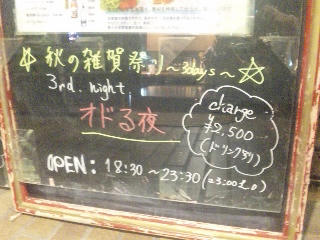 秋の雑賀祭り~3days~
3rd. night.
オドる夜
charge
¥2,500
(ドリンク別)
OPEN: 18:30~23:30